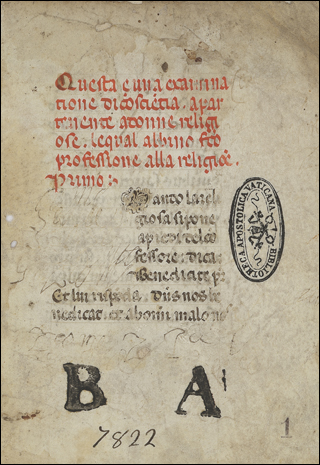 Questa e una examina
tione di cosciẽtia. apar
tenente a donne religi
ose. lequal abbino fcõ
professione alla religiõe.
Primo:
Quanto la religi
giosa si pone
a piedi del cõ
fessore. dica
Benedicite pr
Et lui rispõda. Dñs nos be
nedicat. et ab omni malo nos
BIBLIOTECA APOSTOLICA VATICANA
B A
7822
1